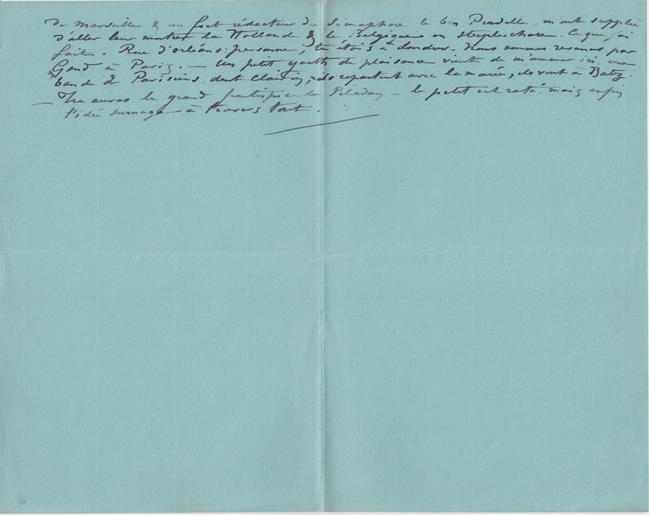 de Marseille & un fort rédacteur du Sémaphore le bon Pradelle, m'ont supplié
d'aller leur montrer la Hollande & la Belgique en steeplechase. Ce que j'ai
fait. Rue d'orléans: personne, tu étais à Londres. Nous sommes revenus par
Gand à Paris. — Un petit yacht de plaisance vient de m'amener ici une
bande de Parisiens, dont Clairin, ils repartent avec la marée, ils vont à Batz.
— Tu auras le grand frontispice de Péladan — le petit est raté, mais enfin
l'idée surnage à travers tout.